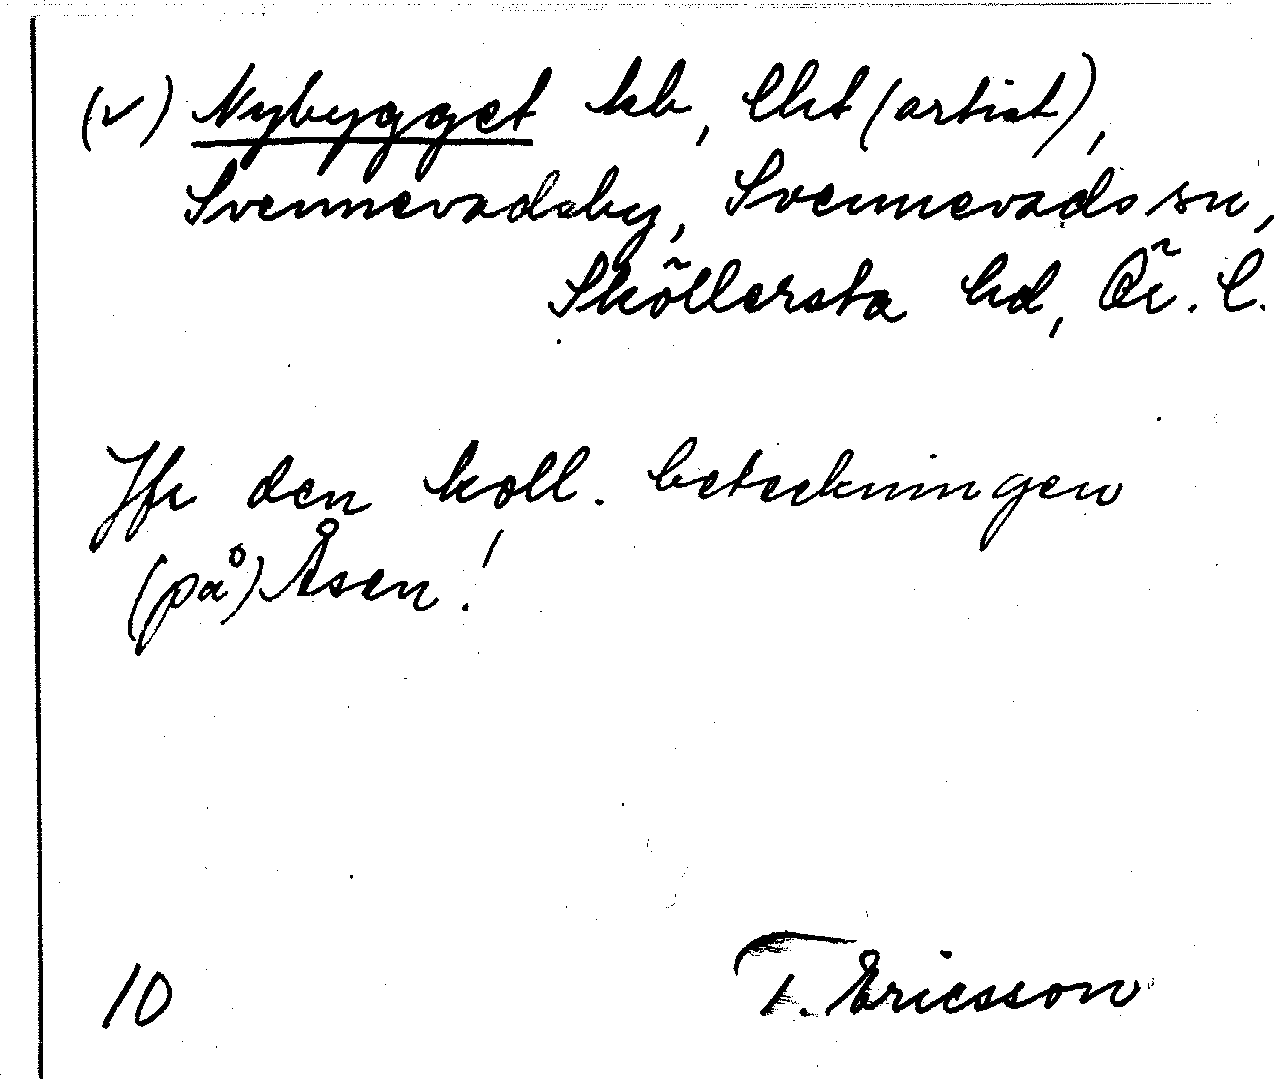 (v) Nybygget hb, lht (artist),
Svennevadsby, Svennevads sn,
Sköllersta hd, Ör. l.
Jfr den koll. beteckningen
(på) Åsen!
10 T. Ericsson